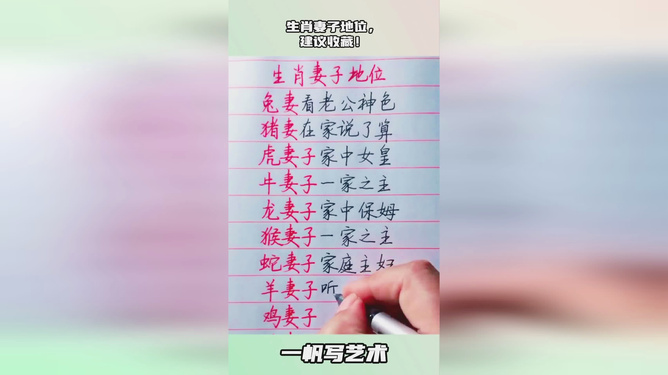 生肖妻子地位，
建议收藏！
生肖妻子地位
兔妻看老公神色
猪妻在家说了算
虎妻子家中女皇
牛妻子一家之主
龙妻子家中保姆
猴妻子一家之主
蛇妻子家庭主妇
羊妻子听
鸡妻子
一帆写艺术